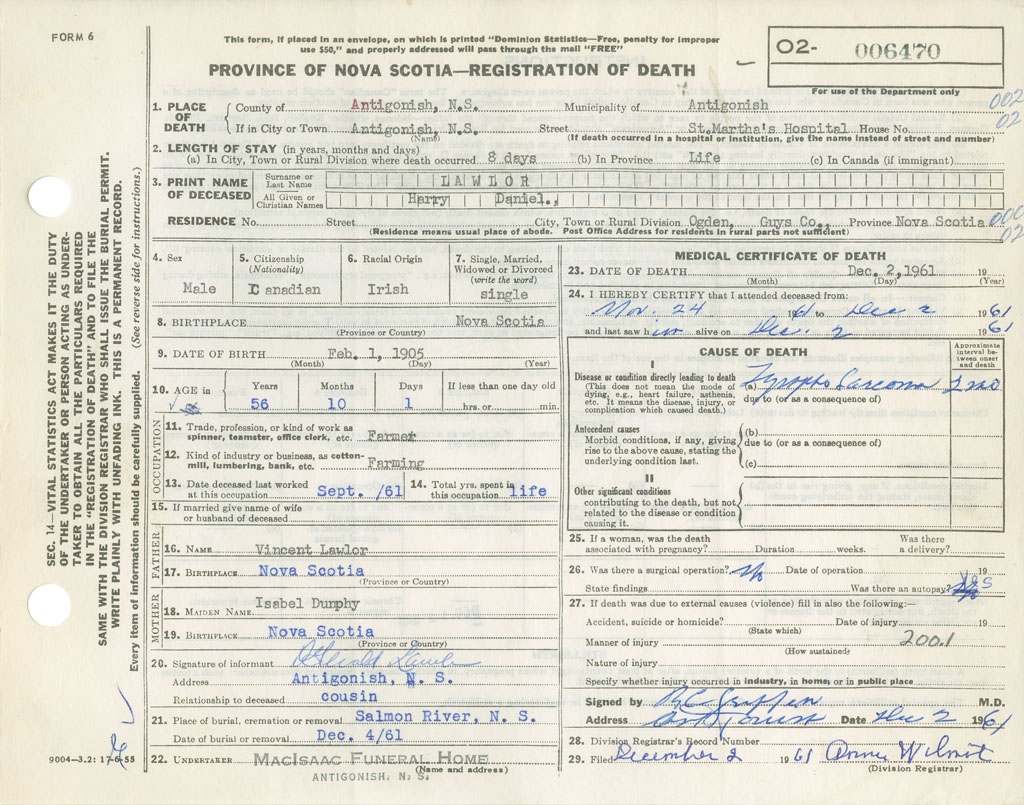 FORM 6
This form, if placed in an envelope, on which is printed "Dominion Statistics—Free, penalty for improper
use $50," and properly addressed will pass through the mail "FREE"
O2- 006470
PROVINCE OF NOVA SCOTIA—REGISTRATION OF DEATH
For use of the Department only
002
02
1. PLACE OF DEATH
County of Antigonish, N.S. Municipality of Antigonish
If in City or Town Antigonish, N.S. Street St.Martha's Hospital House No.
(Name) (If death occurred in a hospital or institution, give the name instead of street and number)
2. LENGTH OF STAY (in years, months and days)
(a) In City, Town or Rural Division where death occurred 8 days (b) In Province Life (c) In Canada (if immigrant)
3. PRINT NAME OF DECEASED
Surname or Last Name LAWLOR
All Given or Christian Names Harry Daniel.,
RESIDENCE No. Street City, Town or Rural Division Ogden, Guys Co., Province Nova Scotia
(Residence means usual place of abode. Post Office Address for residents in rural parts not sufficient)
000
02
4. Sex
Male
5. Citizenship
(Nationality)
Canadian
6. Racial Origin
Irish
7. Single, Married,
Widowed or Divorced
(write the word)
single
8. BIRTHPLACE Nova Scotia
(Province or Country)
9. DATE OF BIRTH Feb. 1, 1905
(Month) (Day) (Year)
10. AGE in
Years Months Days If less than one day old
56 10 1 hrs. or min.
OCCUPATION
11. Trade, profession, or kind of work as
spinner, teamster, office clerk, etc. Farmer
12. Kind of industry or business, as cotton-
mill, lumbering, bank, etc. Farming
13. Date deceased last worked
at this occupation Sept. /61
14. Total yrs. spent in
this occupation life
15. If married give name of wife
or husband of deceased
FATHER
16. NAME Vincent Lawlor
17. BIRTHPLACE Nova Scotia
(Province or Country)
MOTHER
18. MAIDEN NAME Isabel Dunphy
19. BIRTHPLACE Nova Scotia
(Province or Country)
20. Signature of informant Lawlor
Address Antigonish, N. S.
Relationship to deceased cousin
21. Place of burial, cremation or removal Salmon River, N. S.
Date of burial or removal Dec. 4/61
22. UNDERTAKER MACISAAC FUNERAL HOME
(Name and address)
ANTIGONISH, N. S.
MEDICAL CERTIFICATE OF DEATH
23. DATE OF DEATH Dec. 2,1961 19
(Month) (Day) (Year)
24. I HEREBY CERTIFY that I attended deceased from:
Nov. 24 1961 to Dec 2 1961
and last saw him alive on Dec. 2 1961
CAUSE OF DEATH
Approximate
interval be-
tween onset
and death
I
Disease or condition directly leading to death
(This does not mean the mode of
dying, e.g., heart failure, asthenia,
etc. It means the disease, injury, or
complication which caused death.)
(a) Lympho Sarcoma 2 mo
due to (or as a consequence of)
Antecedent causes
Morbid conditions, if any, giving
rise to the above cause, stating the
underlying condition last.
(b)
due to (or as a consequence of)
(c)
II
Other significant conditions
contributing to the death, but not
related to the disease or condition
causing it.
25. If a woman, was the death
associated with pregnancy? Duration weeks. Was there
a delivery?
26. Was there a surgical operation? No Date of operation 19
State findings Was there an autopsy? Yes
27. If death was due to external causes (violence) fill in also the following:—
Accident, suicide or homicide? Date of injury 19
(State which)
Manner of injury 200.1
(How sustained)
Nature of injury
Specify whether injury occurred in industry, in home, or in public place
Signed by M.D.
Address Antigonish Date Dec 2 1961
28. Division Registrar's Record Number
29. Filed December 2 1961 Anne Wilmot
(Division Registrar)
SEC. 14—VITAL STATISTICS ACT MAKES IT THE DUTY
OF THE UNDERTAKER OR PERSON ACTING AS UNDER-
TAKER TO OBTAIN ALL THE PARTICULARS REQUIRED
IN THE "REGISTRATION OF DEATH" AND TO FILE THE
SAME WITH THE DIVISION REGISTRAR WHO SHALL ISSUE THE BURIAL PERMIT.
WRITE PLAINLY WITH UNFADING INK. THIS IS A PERMANENT RECORD.
Every item of information should be carefully supplied. (See reverse side for instructions.)
9004—3.2: 17-6-55